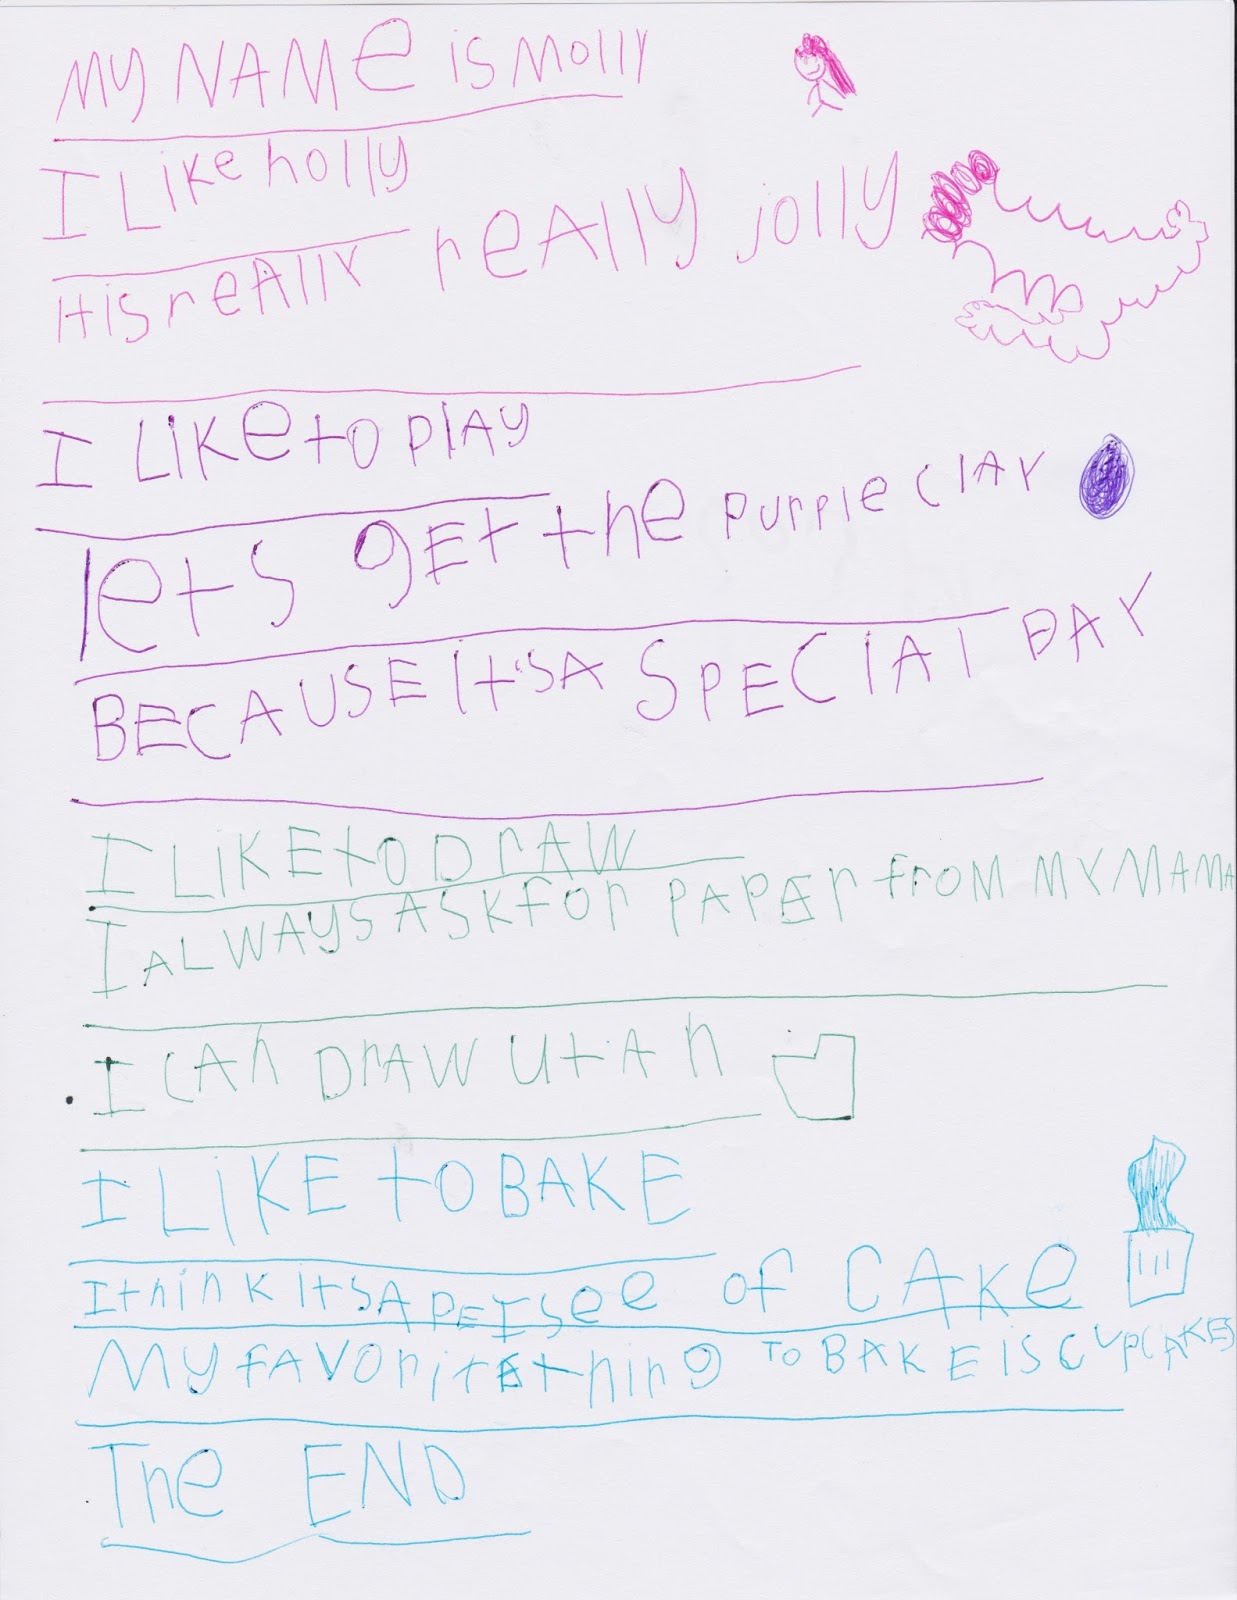 MY NAMe is Molly
I Like holly
It is reAlly reAlly jolly
I LiKe to plAy
lets gEt the purple clAY
BECAUSE It'S A SPECIAl DAY
I LiKE to DrAW
I ALWAyS ASK For PAPEr from MY MAMA
I CAn DrAW UtAh
I LiKE to BAKE
I think itS A PEISee of CAKe
My FAVoritE thing TO BAKE IS CUPCAKES
The END